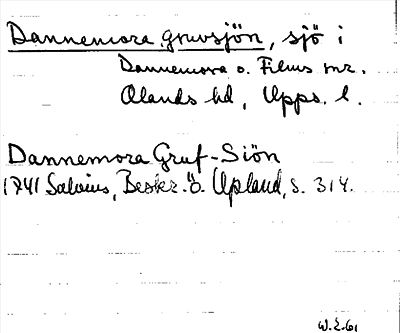 Dannemora gruvsjön, sjö i
Dannemora o. Films snr.
Olands hd, Upps. l.
Dannemora Gruf-Siön
1741 Salvius, Beskr. ö. Upland, s. 314.
W.E.61